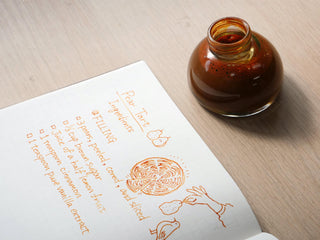 Pear Tart
Ingredients
FILLING
3 pears, peeled, cored, and sliced
1 cup brown sugar
Juice of a half lemon
1 teaspoon cinnamon
1 teaspoon pure vanilla extract